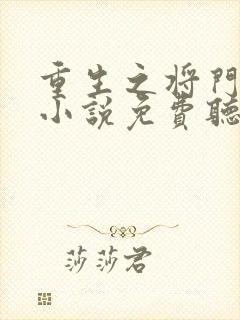 重生之将門
小說免費聽
莎莎君